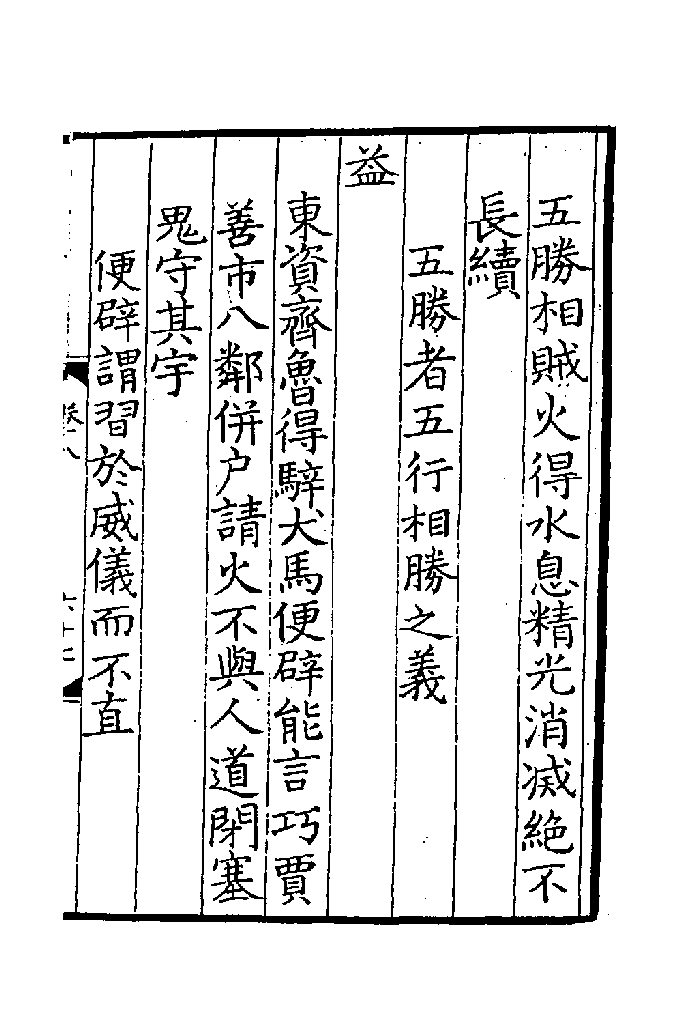 五勝相賊火得水息精光消滅絶不
長續
五勝者五行相勝之義
益
東資齊魯得騂犬馬便辟能言巧賈
善市八鄰併户請火不與人道閉塞
鬼守其宇
便辟謂習於威儀而不直